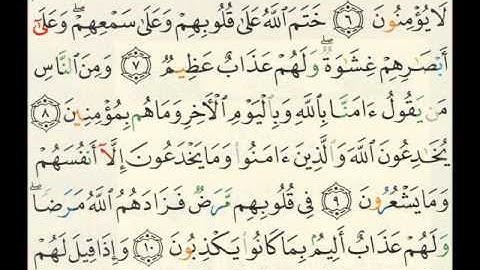 لَا يُؤْمِنُونَ ٦ خَتَمَ ٱللَّهُ عَلَىٰ قُلُوبِهِمْ وَعَلَىٰ سَمْعِهِمْ ۖ وَعَلَىٰٓ
أَبْصَٰرِهِمْ غِشَٰوَةٌ ۖ وَلَهُمْ عَذَابٌ عَظِيمٌ ٧ وَمِنَ ٱلنَّاسِ
مَن يَقُولُ ءَامَنَّا بِٱللَّهِ وَبِٱلْيَوْمِ ٱلْءَاخِرِ وَمَا هُم بِمُؤْمِنِينَ ٨
يُخَٰدِعُونَ ٱللَّهَ وَٱلَّذِينَ ءَامَنُوا۟ وَمَا يَخْدَعُونَ إِلَّآ أَنفُسَهُمْ
وَمَا يَشْعُرُونَ ٩ فِى قُلُوبِهِم مَّرَضٌ فَزَادَهُمُ ٱللَّهُ مَرَضًا ۖ
وَلَهُمْ عَذَابٌ أَلِيمٌۢ بِمَا كَانُوا۟ يَكْذِبُونَ ١٠ وَإِذَا قِيلَ لَهُمْ